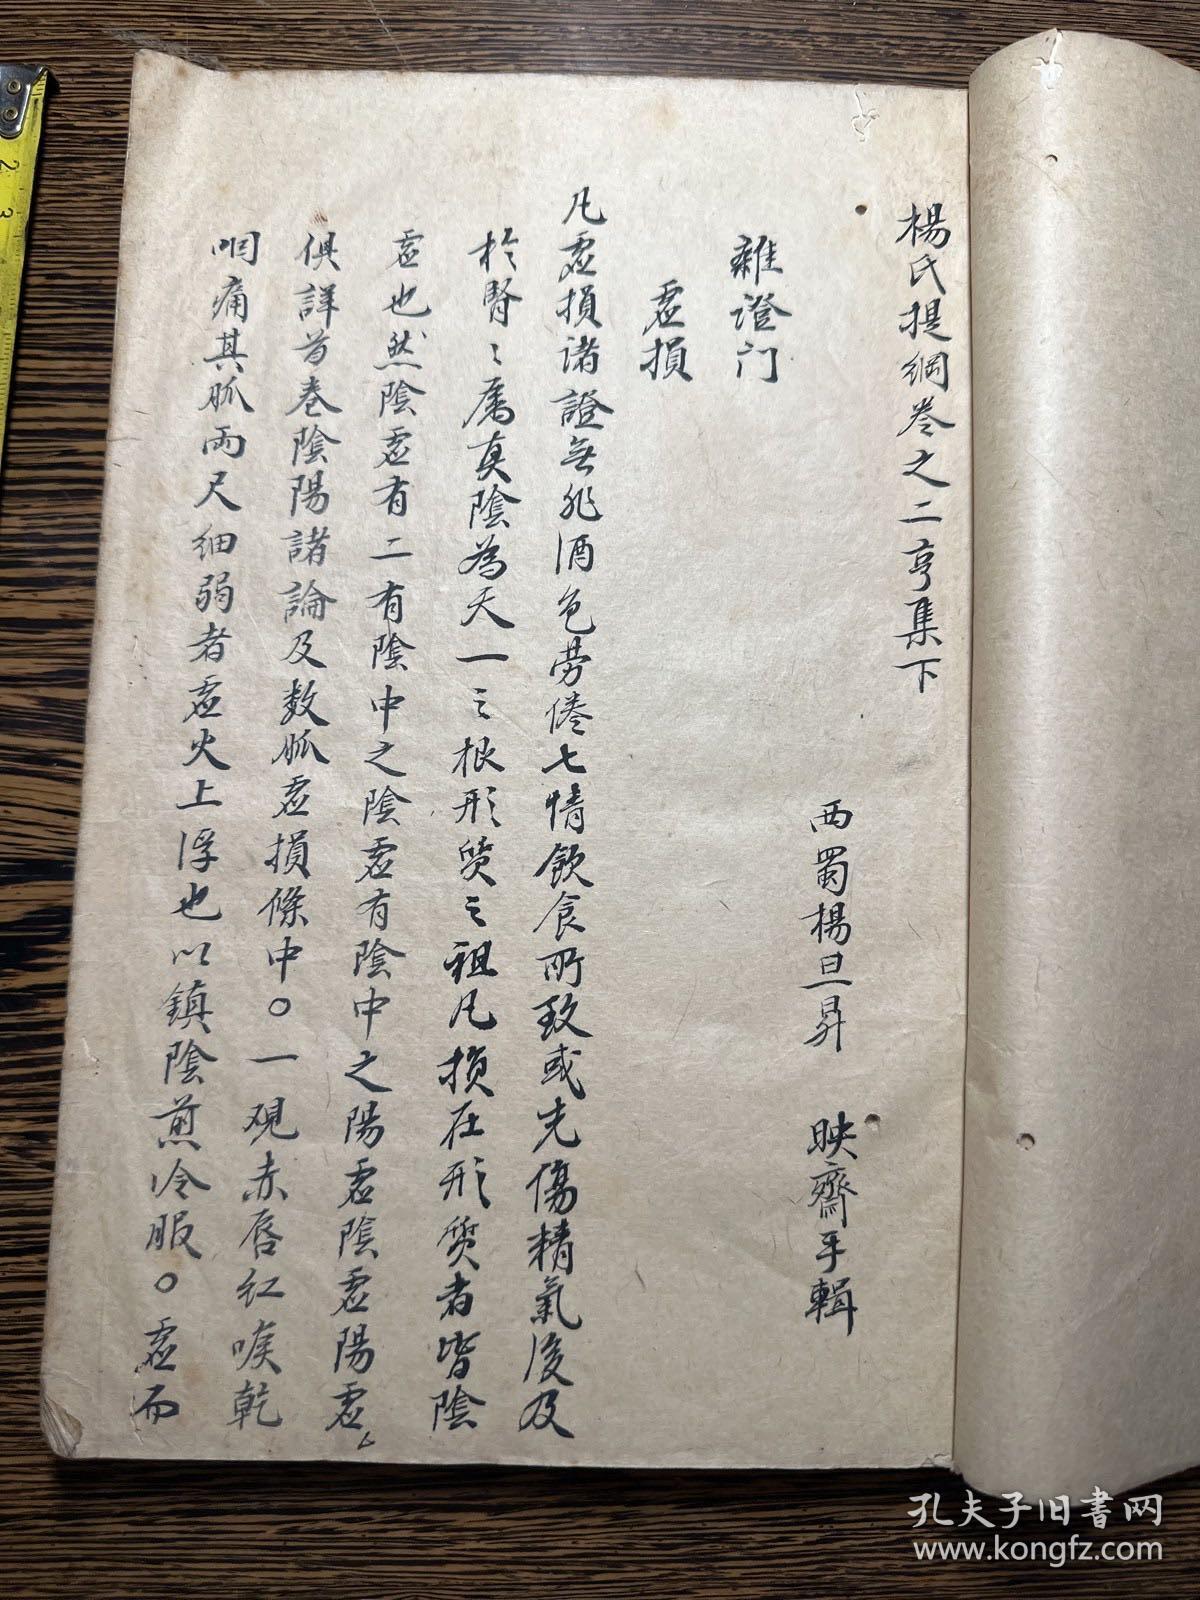 楊氏提綱卷之二亨集下
西蜀楊旦昇 映齋手輯
雜證门
虛損
凡虛損諸證無非酒色劳倦七情飲食所致或先傷精氣後及
於腎〻屬真陰為天一之根形质之祖凡损在形质者皆陰
虛也然陰虛有二有陰中之陰虛有陰中之陽虛陰虛陽虛
俱詳首卷陰陽諸論及数脈虛損條中。一觇赤唇红喉乾
咽痛其脈兩尺细弱者虛火上浮也以鎮陰煎冷服。虛而
孔夫子旧书网
www.kongfz.com
2
3